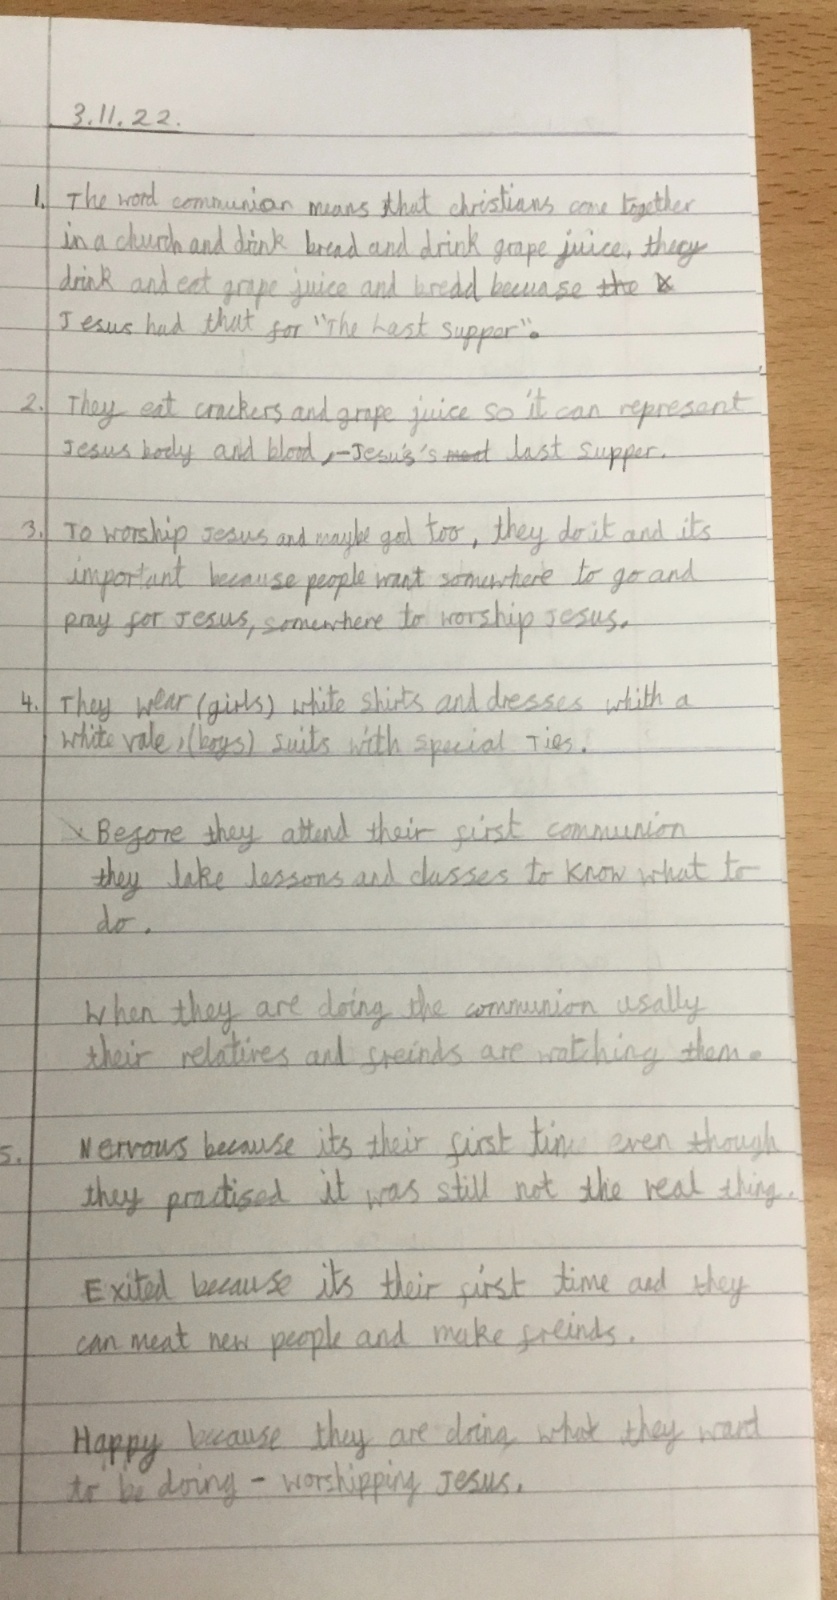 3.11.22.
1. The word communion means that christians come together
in a church and drink bread and drink grape juice, they
drink and eat grape juice and bredd becuase the
Jesus had that for "The Last Supper".
2. They eat crackers and grape juice so it can represent
Jesus body and blood, -Jesus's meat last supper.
3. To worship Jesus and maybe god too, they do it and its
important because people want somewhere to go and
pray for Jesus, somewhere to worship Jesus.
4. They wear (girls) white shirts and dresses whith a
white vale, (boys) suits with special Ties.
Before they attend their first communion
they take lessons and classes to know what to
do.
When they are doing the communion usally
their relatives and freinds are watching them.
5. Nervous because its their first time even though
they practised it was still not the real thing.
Exited because its their first time and they
can meat new people and make freinds.
Happy because they are doing what they want
to be doing - worshipping Jesus.